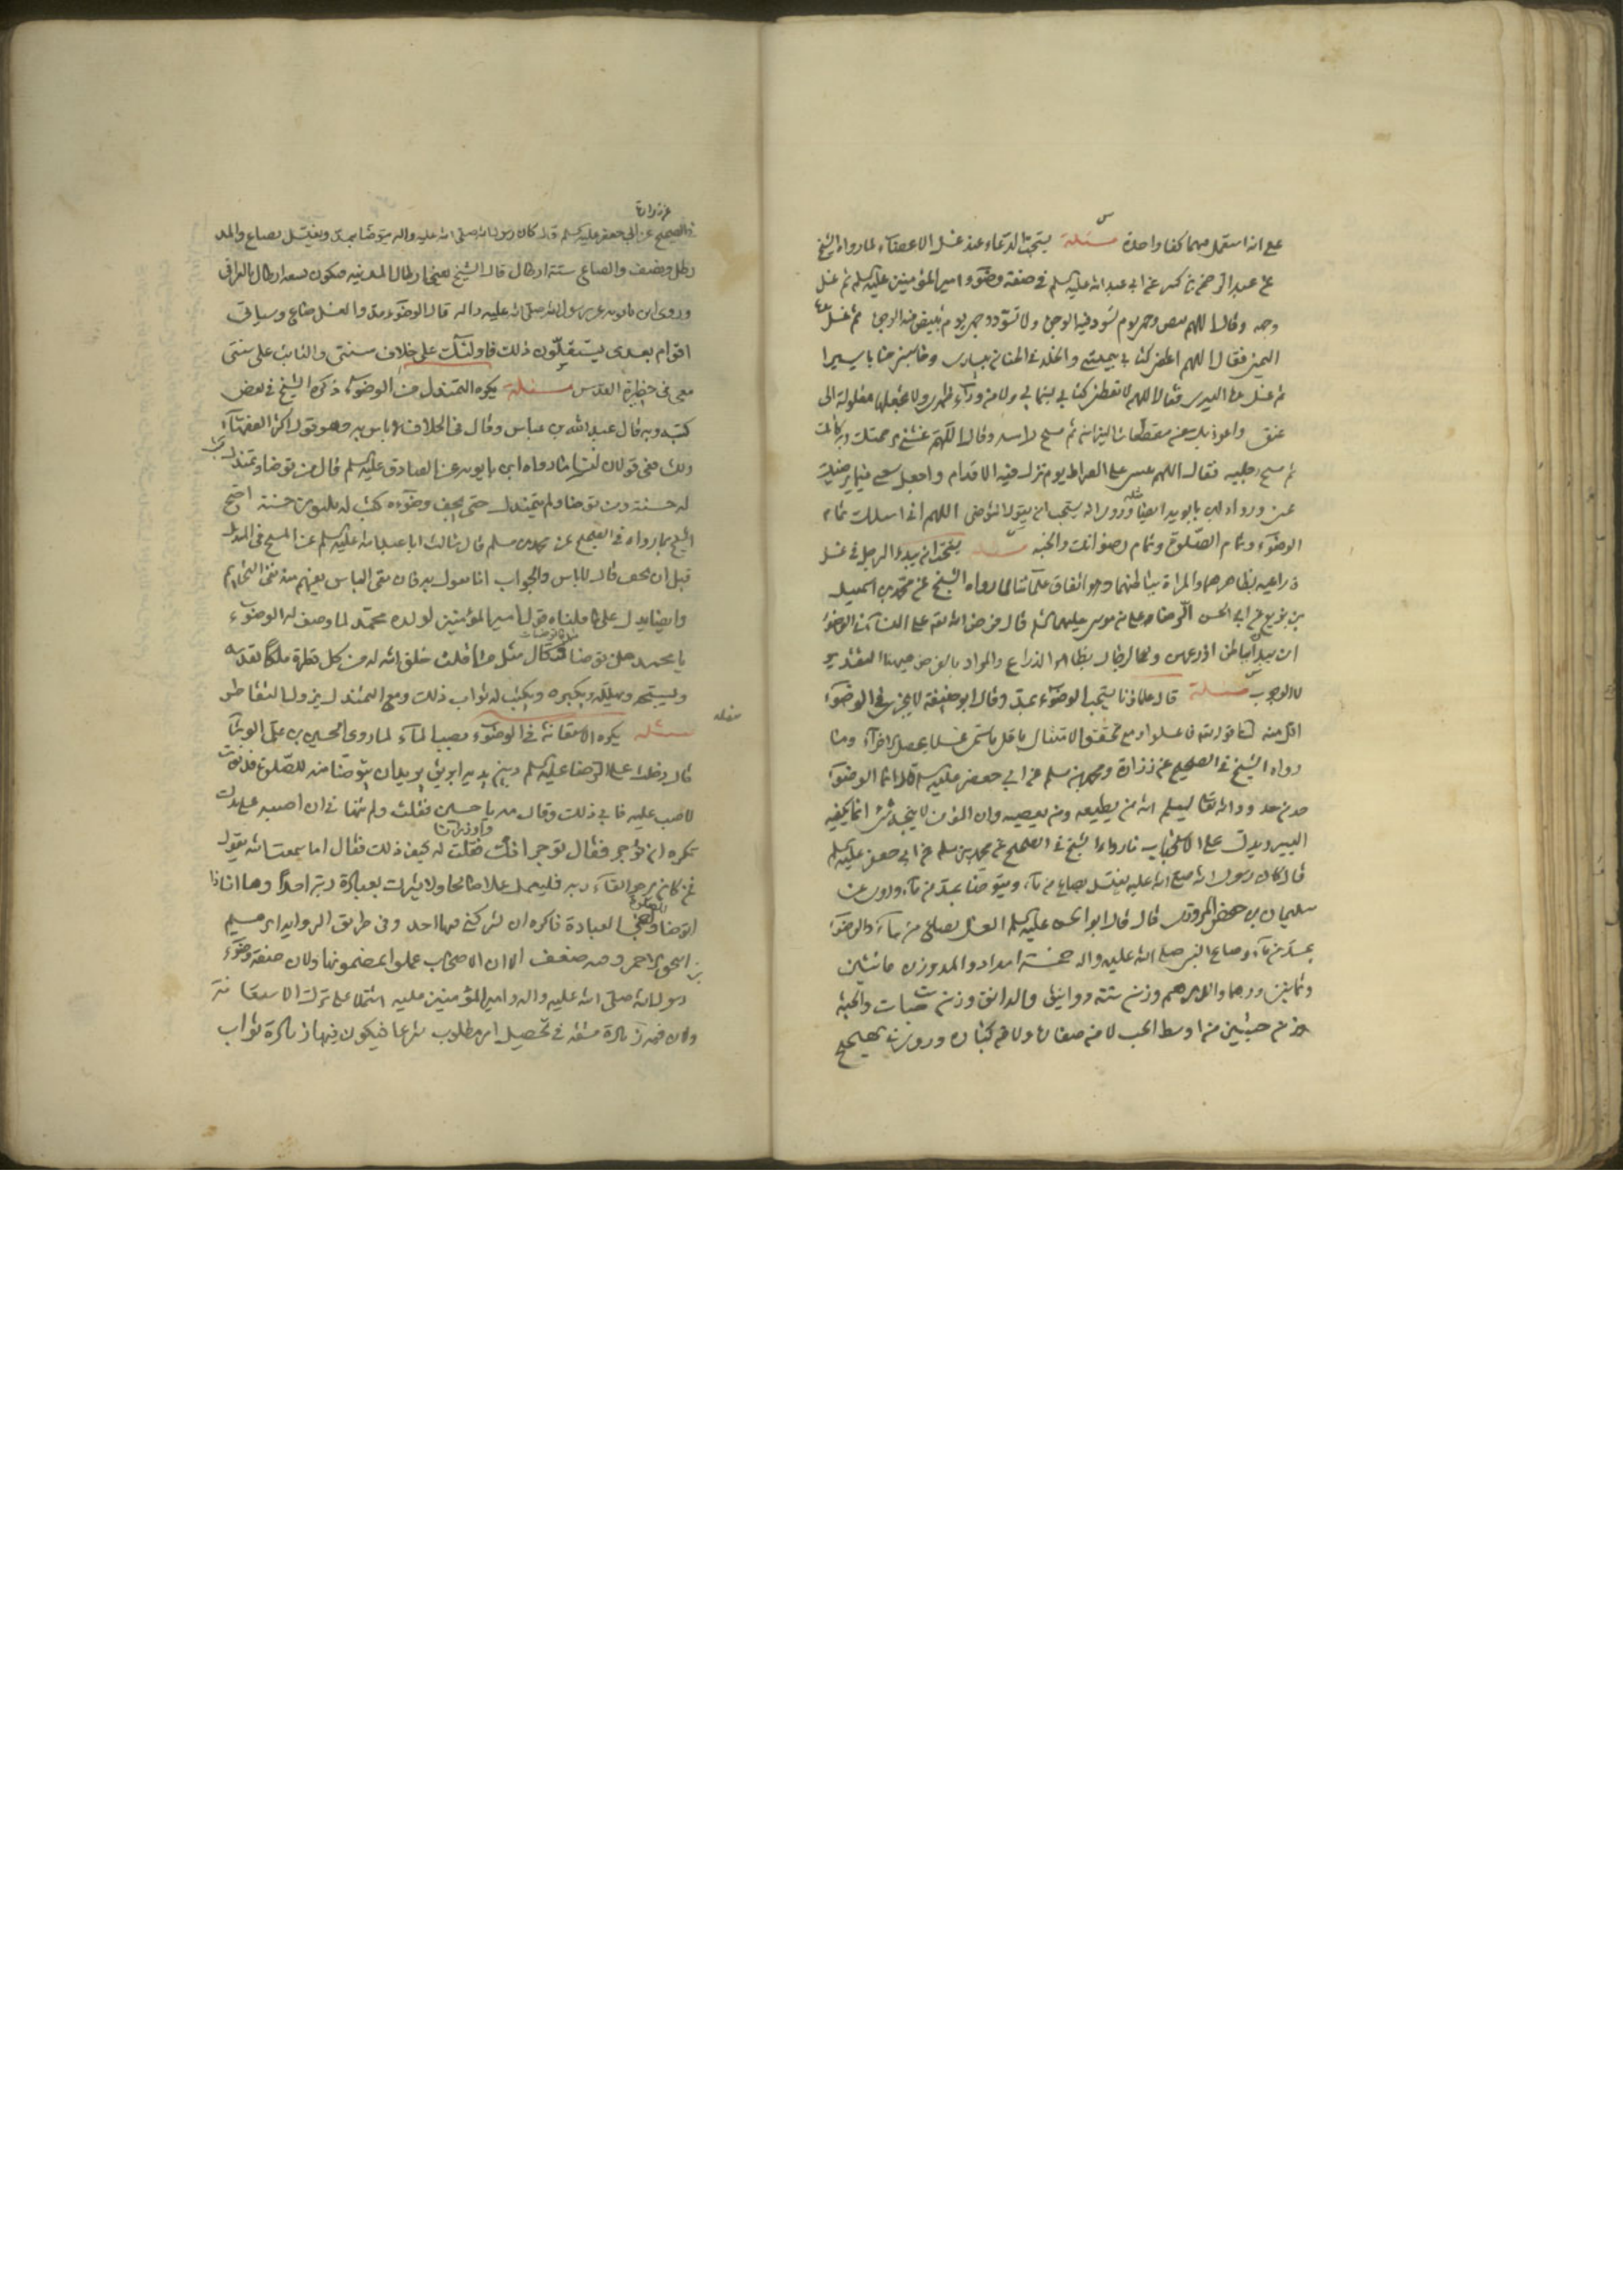 على انه استعمل مهما كفا واحدة مسئلة يستحب الدعاء عند غسل الاعضاء لما رواه الشيخ
عن عبد الرحمن بن كثير عن ابي عبد الله عليه السلم في صفة وضوء امير المؤمنين عليه السلم ثم غسل
وجهه وقال اللهم بيض وجهي يوم تسود فيه الوجوه ولا تسود وجهي يوم تبيض فيه الوجوه ثم غسل يده
اليمنى فقال اللهم اعطني كتابي بيميني والخلد في الجنان بيساري وحاسبني حسابا يسيرا
ثم غسل يده اليسرى فقال اللهم لا تعطني كتابي بشمالي ولا من وراء ظهري ولا تجعلها مغلولة الى
عنقي واعوذ بك من مقطعات النيران ثم مسح راسه وقال اللهم غشني برحمتك وبركاتك
ثم مسح رجليه فقال اللهم ثبتني على الصراط يوم تزل فيه الاقدام واجعل سعيي فيما يرضيك
عني ورواه ابن بابويه ايضا وروى انه يستحب ان يقول المتوضي اللهم اني اسئلك تمام
الوضوء وتمام الصلوة وتمام رضوانك والجنه مسئلة يستحب ان يبدء الرجل في غسل
ذراعيه بظاهرهما والمراة بباطنهما وهو اتفاق علمائنا لما رواه الشيخ عن محمد بن اسمعيل
بن بزيع عن ابي الحسن الرضا علي بن موسى عليهما السلم قال فرض الله تعالى على النساء في الوضوء
ان يبدأن بباطن اذرعهن وفي الرجال بظاهر الذراع والمراد بالفرض هيهنا التقدير
لا الوجوب مسئلة قال علماؤنا يستحب الوضوء بمد وقال ابو حنيفة لا يجزي في الوضوء
اقل منه لنا قوله تعالى فاغسلوا ومع تحقق الامتثال باقل ما يسمى غسلا يحصل الاجزاء وما
رواه الشيخ في الصحيح عن زرارة ومحمد بن مسلم عن ابي جعفر عليه السلم قال انما الوضوء
حد من حدود الله تعالى ليعلم الله من يطيعه ومن يعصيه وان المؤمن لا ينجسه شيء انما يكفيه
اليسير ويدل على الاستحباب ما رواه الشيخ في الصحيح عن محمد بن مسلم عن ابي جعفر عليه السلم
قال كان رسول الله صلى الله عليه يغتسل بصاع من ماء ويتوضا بمد من ماء وروى عن
سليمان بن حفص المروزي قال قال ابو الحسن عليه السلم الغسل بصاع من ماء والوضوء
بمد من ماء وصاع النبي صلى الله عليه واله خمسة امداد والمد وزن مائتين
وثمانين درهما والدرهم وزن ستة دوانيق والدانق وزن ست حبات والحبة
وزن حبتين من اوسط الحب لا من صغاره ولا من كباره وروى في الصحيح
عن زرارة
في الصحيح عن ابي جعفر عليه السلم قال كان رسول الله صلى الله عليه واله يتوضا بمد ويغتسل بصاع والمد
رطل ونصف والصاع ستة ارطال قال الشيخ يعني ارطال المدينه فيكون تسعة ارطال بالعراقي
وروى ابن بابويه عن رسول الله صلى الله عليه واله قال الوضوء بمد والغسل صاع وسياتي
اقوام بعدي يستقلون ذلك فاولئك على خلاف سنتي والثابت على سنتي
معي في حظيرة القدس مسئلة يكره التمندل من الوضوء ذكره الشيخ في بعض
كتبه وبه قال عبد الله بن عباس وقال في الخلاف لا باس به وهو قول اكثر الفقهاء
لنا ما رواه ابن بابويه عن الصادق عليه السلم قال من توضا وتمندل كتب
له حسنة ومن توضا ولم يتمندل حتى يجف وضوءه كتب له ثلثون حسنة احتج
الشيخ بما رواه في الصحيح عن محمد بن مسلم قال سالت ابا عبد الله عليه السلم عن المسح في المنديل
قبل ان يجف قال لا باس والجواب انا نقول به فان نفي الباس يفهم منه نفي التحريم
وايضا يدل على ما قلناه قول امير المؤمنين لولده محمد لما وصف له الوضوء
يا محمد من توضا وقال مثل ما قلت خلق الله له من كل قطرة ملكا يقدسه
ويسبحه ويهلله ويكبره ويكتب له ثواب ذلك ومع التمندل يزول التقاطر
مسئله
مسئله يكره الاستعانة في الوضوء بصب الماء لما روى الحسين بن علي الوشا
قال دخلت على الرضا عليه السلم وبين يديه ابريق يريد ان يتوضا منه للصلوة فدنوت
لاصب عليه فابى ذلك وقال مه يا حسين فقلت ولم تنهاني ان اصب على يدك
تكره ان اوجر فقال توجر انت واوزر انا فقلت له كيف ذلك فقال اما سمعت الله يقول
فمن كان يرجو لقاء ربه فليعمل عملا صالحا ولا يشرك بعبادة ربه احدا وها انا ذا
اتوضا للصلوة وهي العبادة فاكره ان يشركني فيها احد وفي طريق الروايه ابرهيم
بن اسحق الاحمر وفيه ضعف الا ان الاصحاب عملوا بمضمونها ولان صفة وضوء
رسول الله صلى الله عليه واله وامير المؤمنين عليه اشتملا على ترك الاستعانة
ولان فيه زيادة مشقة في تحصيل امر مطلوب شرعا فيكون فيها زيادة ثواب